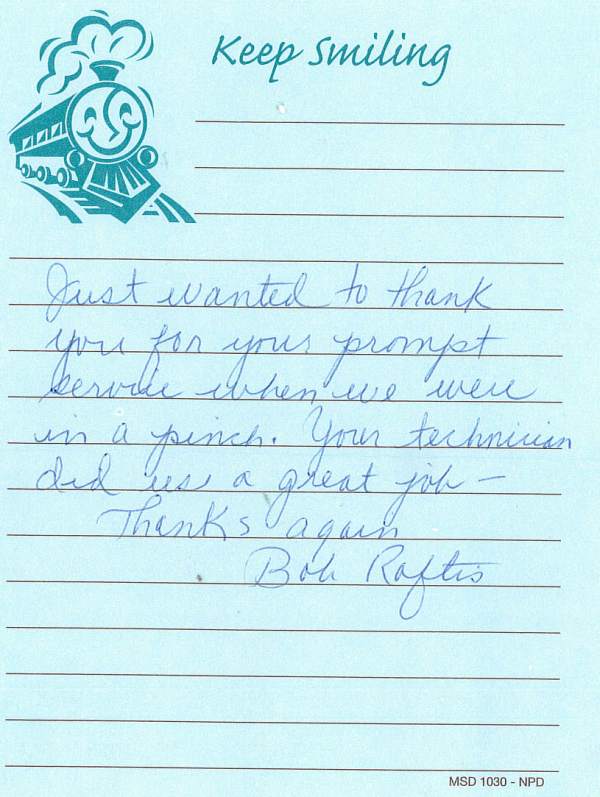 Keep Smiling
Just wanted to thank
you for your prompt
service when we were
in a pinch. Your technician
did us a great job –
Thanks again
Bob Raftis
MSD 1030 - NPD